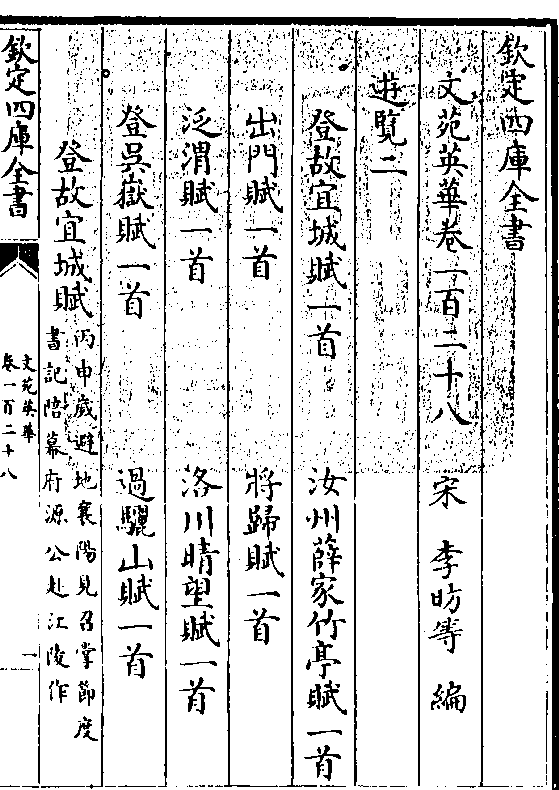 欽定四庫全書
文苑英華卷一百二十八　宋　李昉等　編
遊覽二
登故宜城賦一首　汝州薛家竹亭賦一首
出門賦一首　將歸賦一首
泛渭賦一首　洛川晴望賦一首
登吳嶽賦一首　過驪山賦一首
登故宜城賦 丙申歲避地襄陽見召掌節度
書記陪幕府源公赴江陵作
欽定四庫全書
文苑英華
卷一百二十八
一